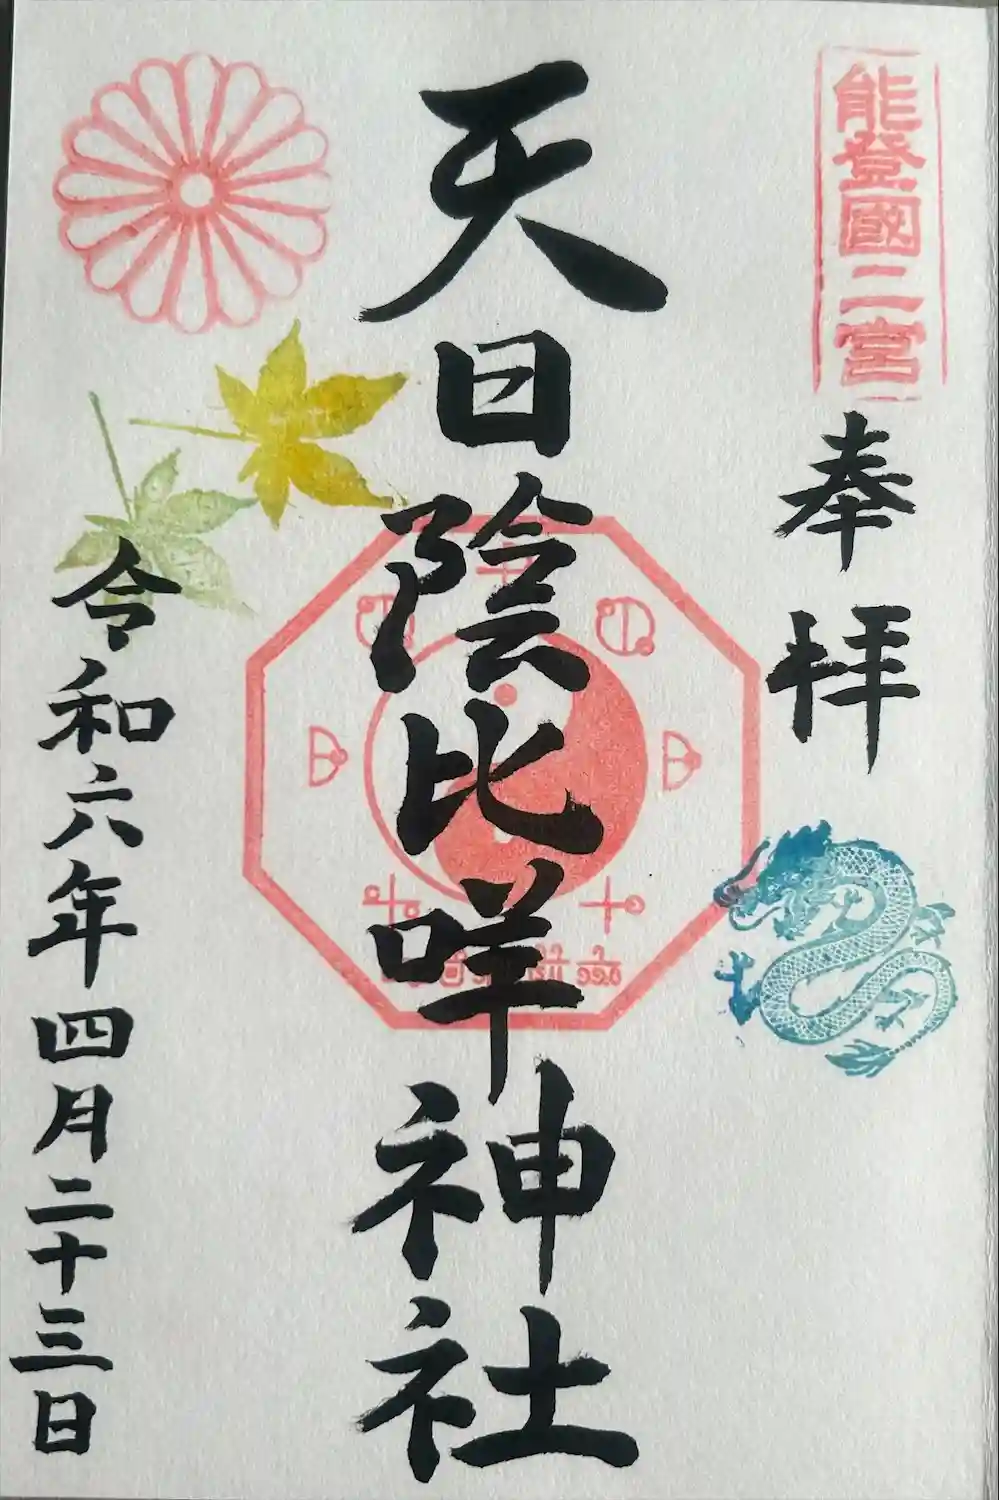 能登國二宮
奉拝
天日陰比咩神社
令和六年四月二十三日